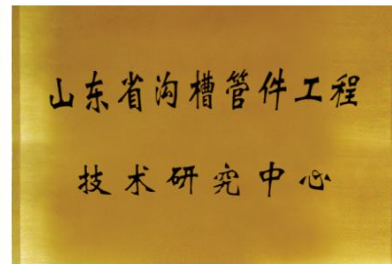 山东省沟槽管件工程
技术研究中心